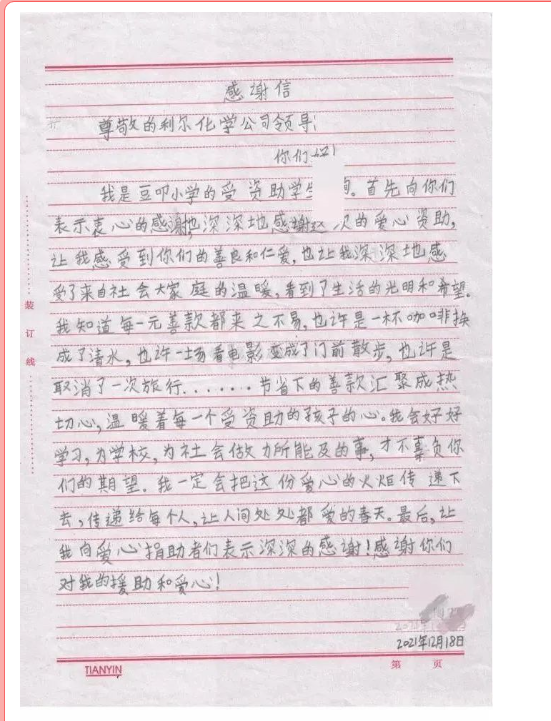 感谢信
尊敬的利尔化学公司领导:
你们
我是豆叩小学的受资助学生 。首先向你们
表示衷心的感谢也深深地感谢这 次的爱心资助,
让我感受到你们的善良和仁爱,也让我深深地感
受了来自社会大家庭的温暖,看到了生活的光明和希望。
我知道每一元善款都来之不易,也许是一杯咖啡换
成了清水,也许一场看电影变成了门前散步,也许是
取消了一次旅行.......节省下的善款汇聚成热
切心,温暖着每一个受资助的孩子的心。我会好好
学习,为学校,为社会做力所能及的事,才不辜负你
们的期望。我一定会把这份爱心的火炬传递下
去,传递给每个人,让人间处处都爱的春天。最后,让
我向爱心捐助者们表示深深的感谢!感谢你们
对我的援助和爱心!
2021年12月18日
装订线
TIANYIN
第 页